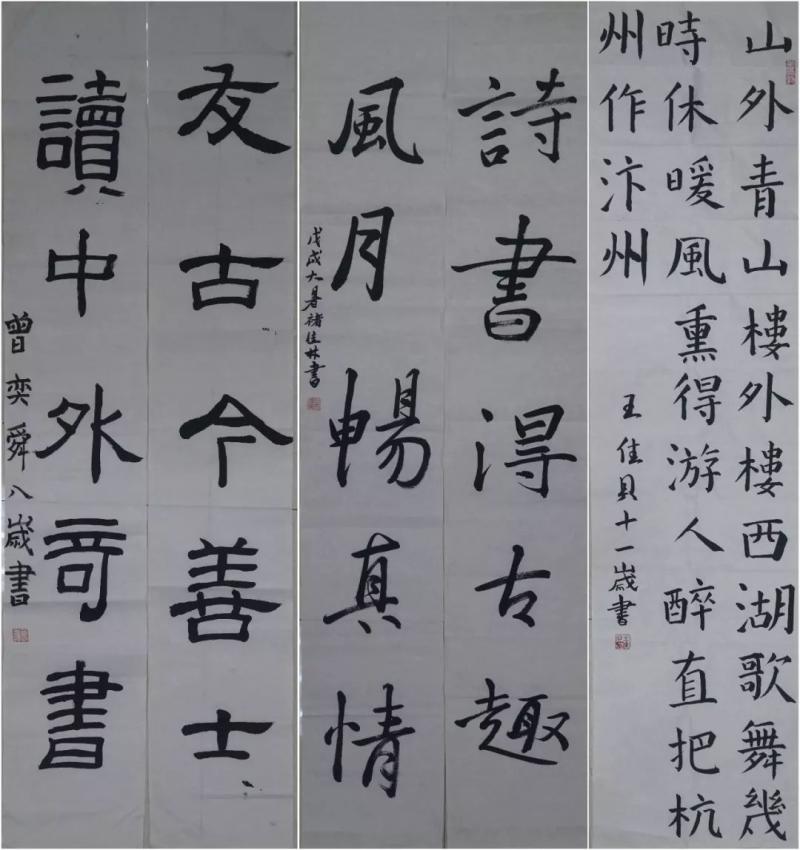 山外青山樓外樓西湖歌舞幾
時休暖風熏得游人醉直把杭
州作汴州
王佳貝十一歲書
詩書得古趣
風月暢真情
戊戌大暑褚佳林書
友古今善士
讀中外奇書
曾奕舜八歲書